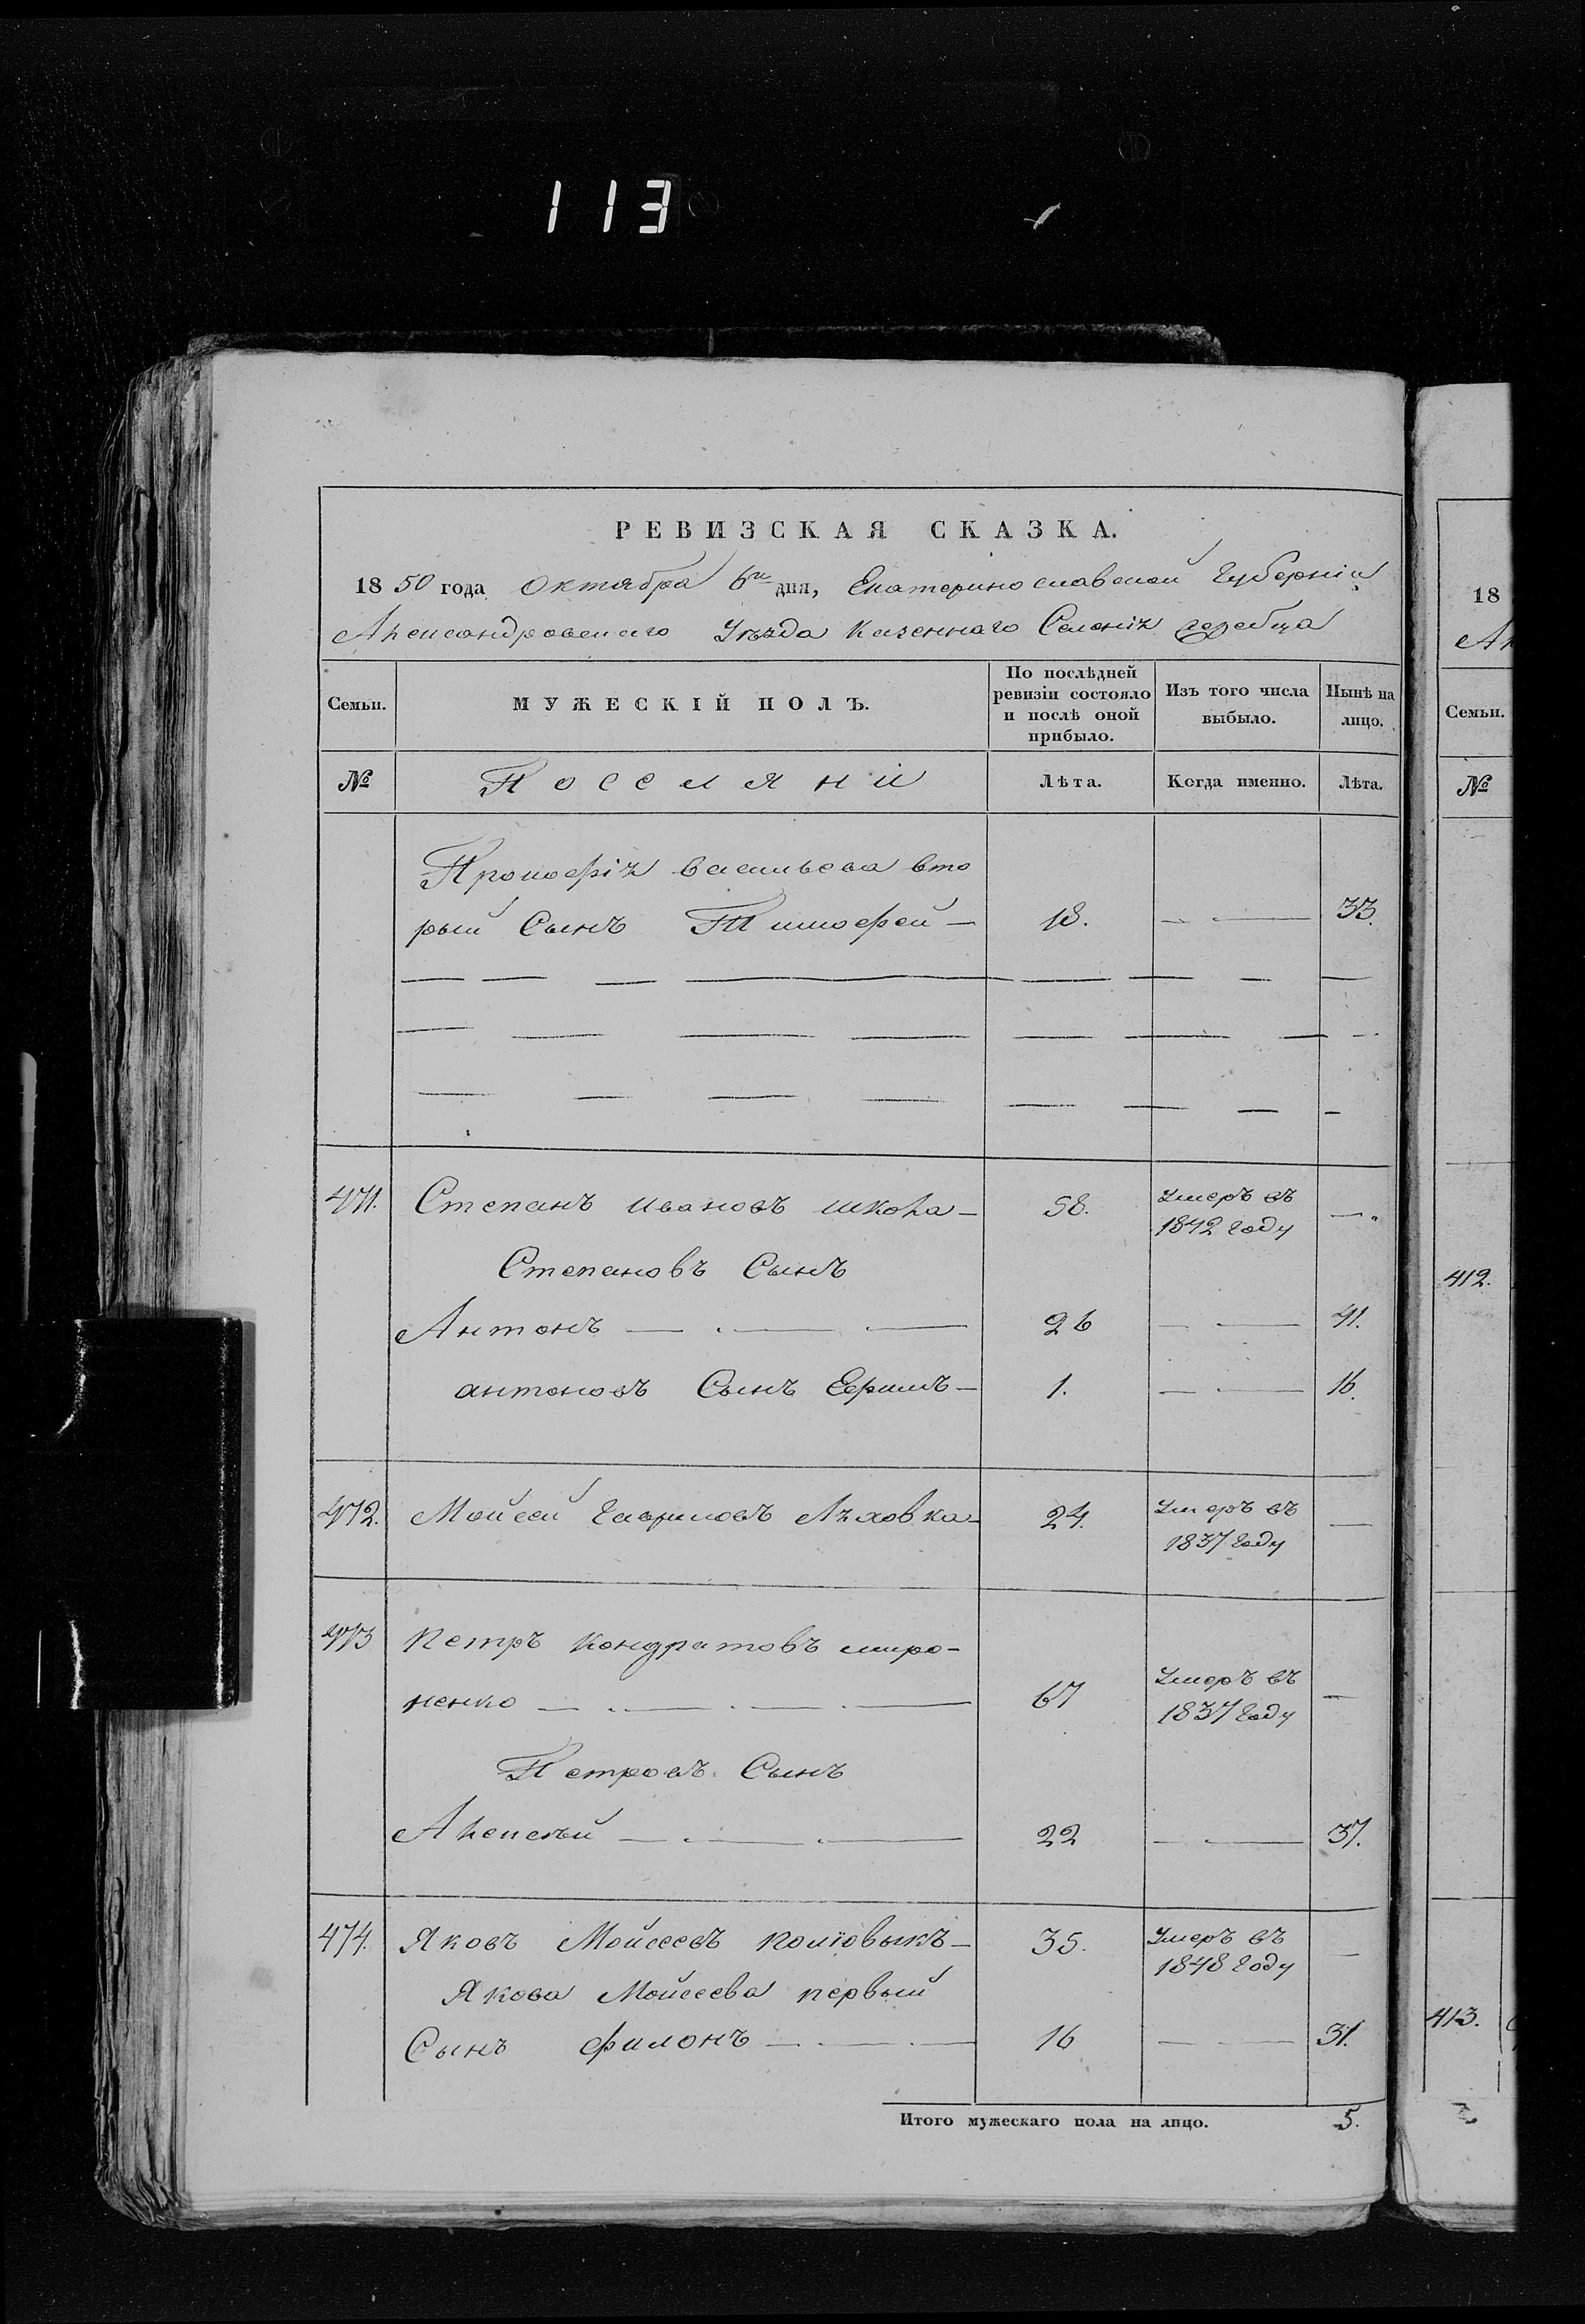 113
РЕВИЗСКАЯ СКАЗКА.
1850 года Октября 6го дня, Екатеринославской Губерніи
Александровскаго Уѣзда Казеннаго Селенія Жеребца
Семьи.
МУЖЕСКІЙ ПОЛЪ.
По послѣдней ревизіи состояло и послѣ оной прибыло.
Изъ того числа выбыло.
Нынѣ на лицо.
№
Поселяни
Лѣта.
Когда именно.
Лѣта.
Прокофія васильева вто
рый Сынъ Тимофей — 18. — — 33.
471. Степанъ Ивановъ шкода — 58. Умеръ въ 1842 году —
Степановъ Сынъ
Антонъ — 26 — — 41.
антоновъ Сынъ Ефимъ — 1. — — 16.
472. Мойсей Гавриловъ Ляховка — 24. Умеръ въ 1837 году —
473 Петръ Кондратовъ миро-
ненко — 67 Умеръ въ 1837 году —
Петровъ Сынъ
Алексѣй — 22 — — 37.
474. Яковъ Мойсеевъ — 35. Умеръ въ 1848 году —
Якова Мойсеева первый
Сынъ филонъ — 16 — — 31.
Итого мужескаго пола на лицо. 5.
18
Семьи.
№
412.
413.